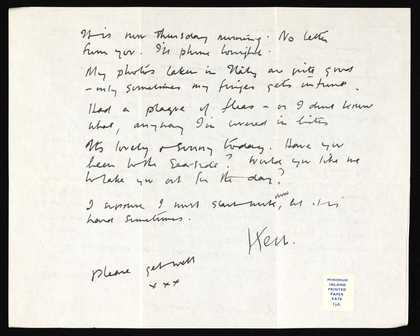 It is now Thursday morning. No letter
from you. I'll phone tonight.
My photos taken in Italy are quite good
- only sometimes my finger gets in front.
Had a plague of fleas - or I dont know
what, anyway I'm covered in bites
Its lovely & sunny today. Have you
been to the Sea-side? Would you like me
to take you out for the day?
I suppose I must start work, now
but it is
hard sometimes.
Ken.
please get well
x x x
MINIMUM
INLAND
PRINTED
PAPER
RATE